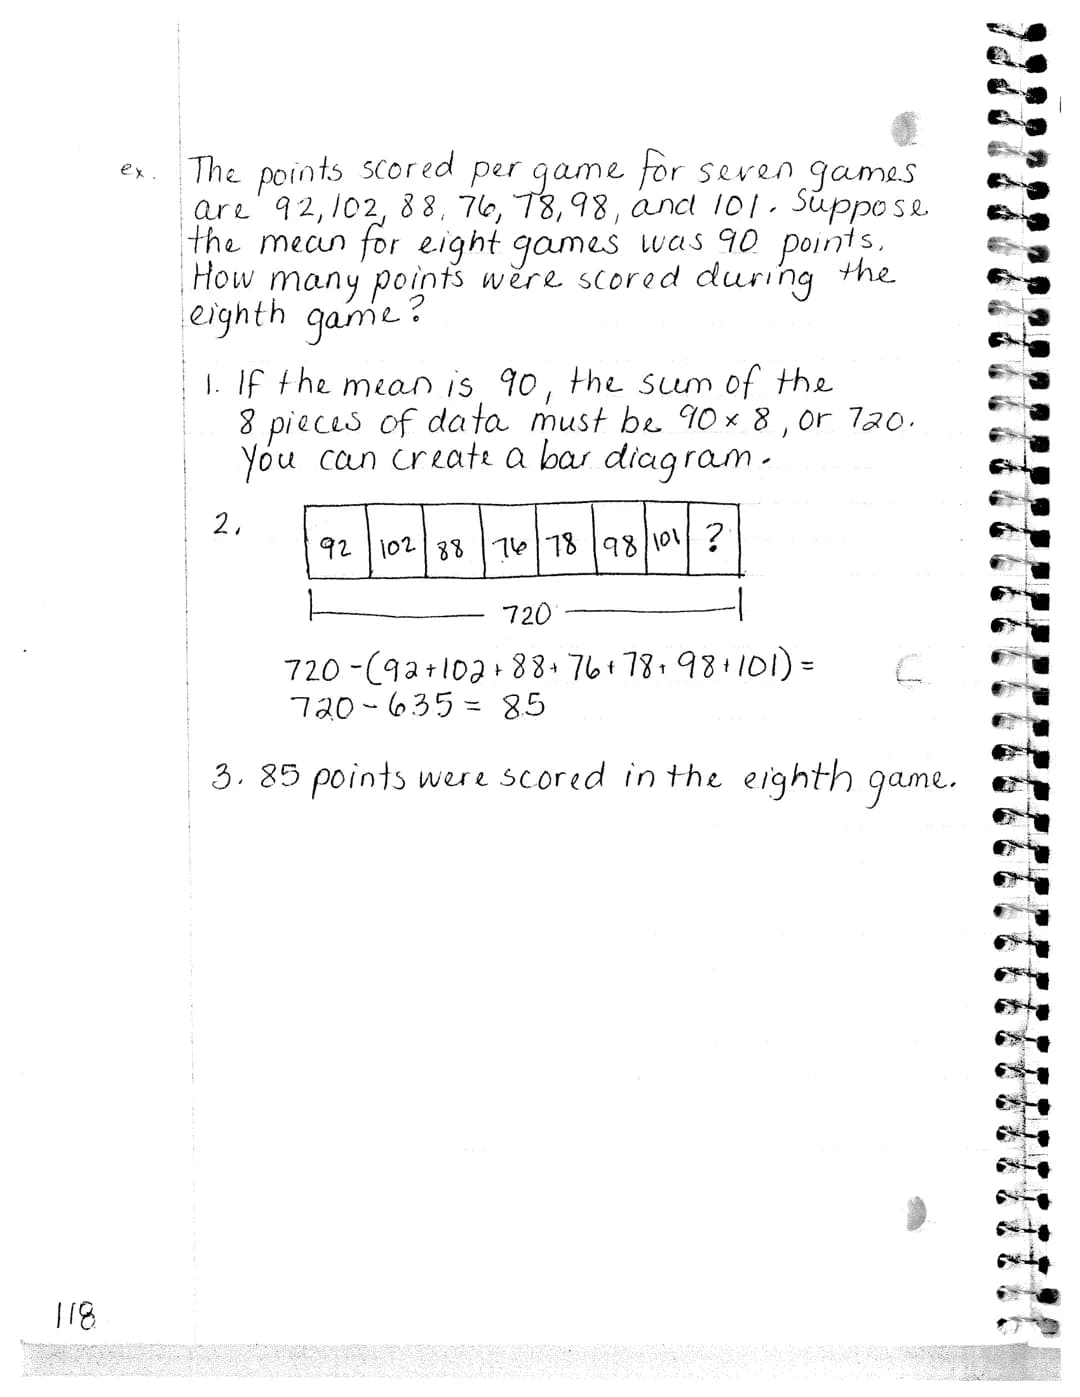 ex. The points scored per game for seven games
are 92, 102, 88, 76, 78, 98, and 101. Suppose
the mean for eight games was 90 points.
How many points were scored during the
eighth game?
1. If the mean is 90, the sum of the
8 pieces of data must be 90 x 8, or 720.
You can create a bar diagram.
2.
92 102 88 76 78 98 101 ?
720
720 - (92+102+88+76+78+98+101) =
720 - 635 = 85
3. 85 points were scored in the eighth game.
118